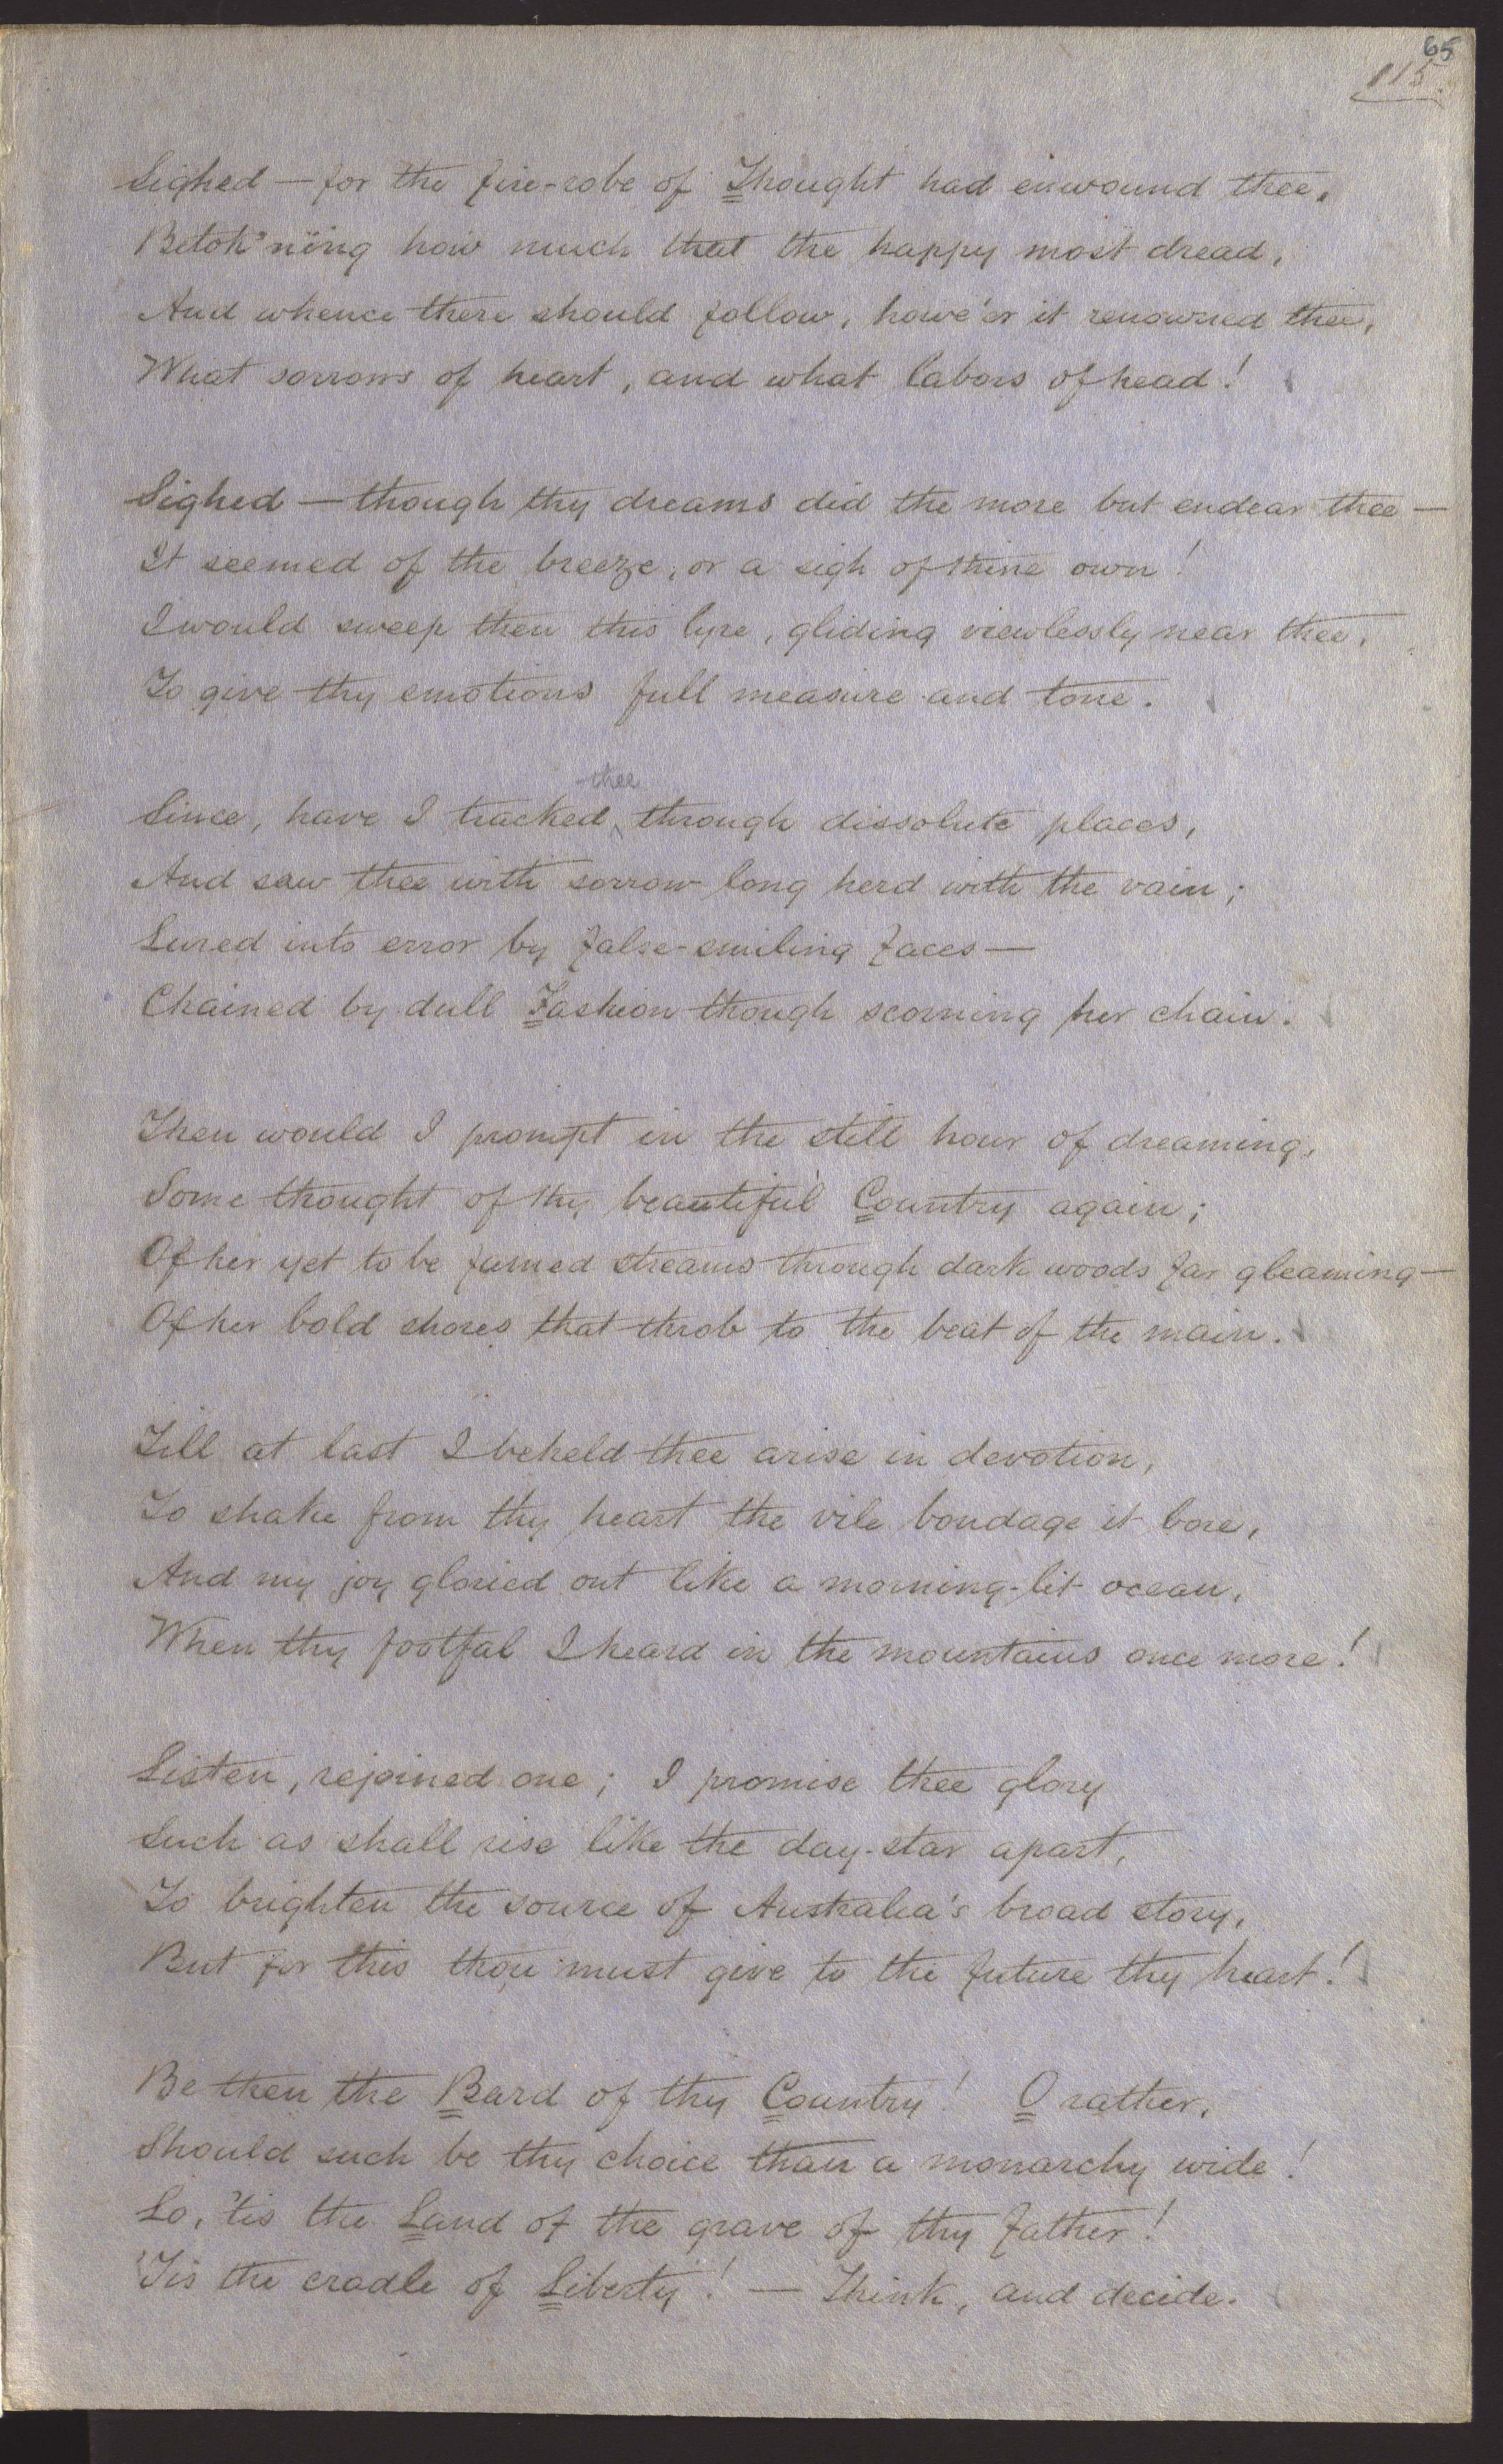 65
115.
Sighed — for the fire-robe of Thought had enwound thee,
Betok'ning how much that the happy most dread,
And whence there should follow, howe'er it renowned thee,
What sorrows of heart, and what labors of head!
Sighed — though thy dreams did the more but endear thee —
It seemed of the breeze, or a sigh of thine own!
I would sweep then this lyre, gliding viewlessly near thee,
To give thy emotions full measure and tone.
thee
Since, have I tracked through dissolute places,
And saw thee with sorrow long herd with the vain;
Lured into error by false-smiling faces —
Chained by dull Fashion though scorning her chain.
Then would I prompt in the still hour of dreaming,
Some thought of thy beautiful Country again;
Of her yet to be famed streams through dark woods far gleaming —
Of her bold shores that throb to the beat of the main.
Till at last I beheld thee arise in devotion,
To shake from thy heart the vile bondage it bore,
And my joy gloried out like a morning-lit ocean,
When thy footfal I heard in the mountains once more!
Listen, rejoined one; I promise thee glory
Such as shall rise like the day-star apart,
To brighten the source of Australia's broad story,
But for this thou must give to the future thy heart!
Be then the Bard of thy Country! O rather,
Should such be thy choice than a monarchy wide!
Lo, 'tis the Land of the grave of thy father!
'Tis the cradle of Liberty! — Think, and decide.